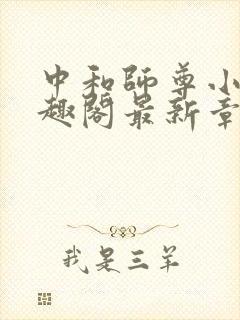 中和師尊小
趣閣最新章
我是三羊